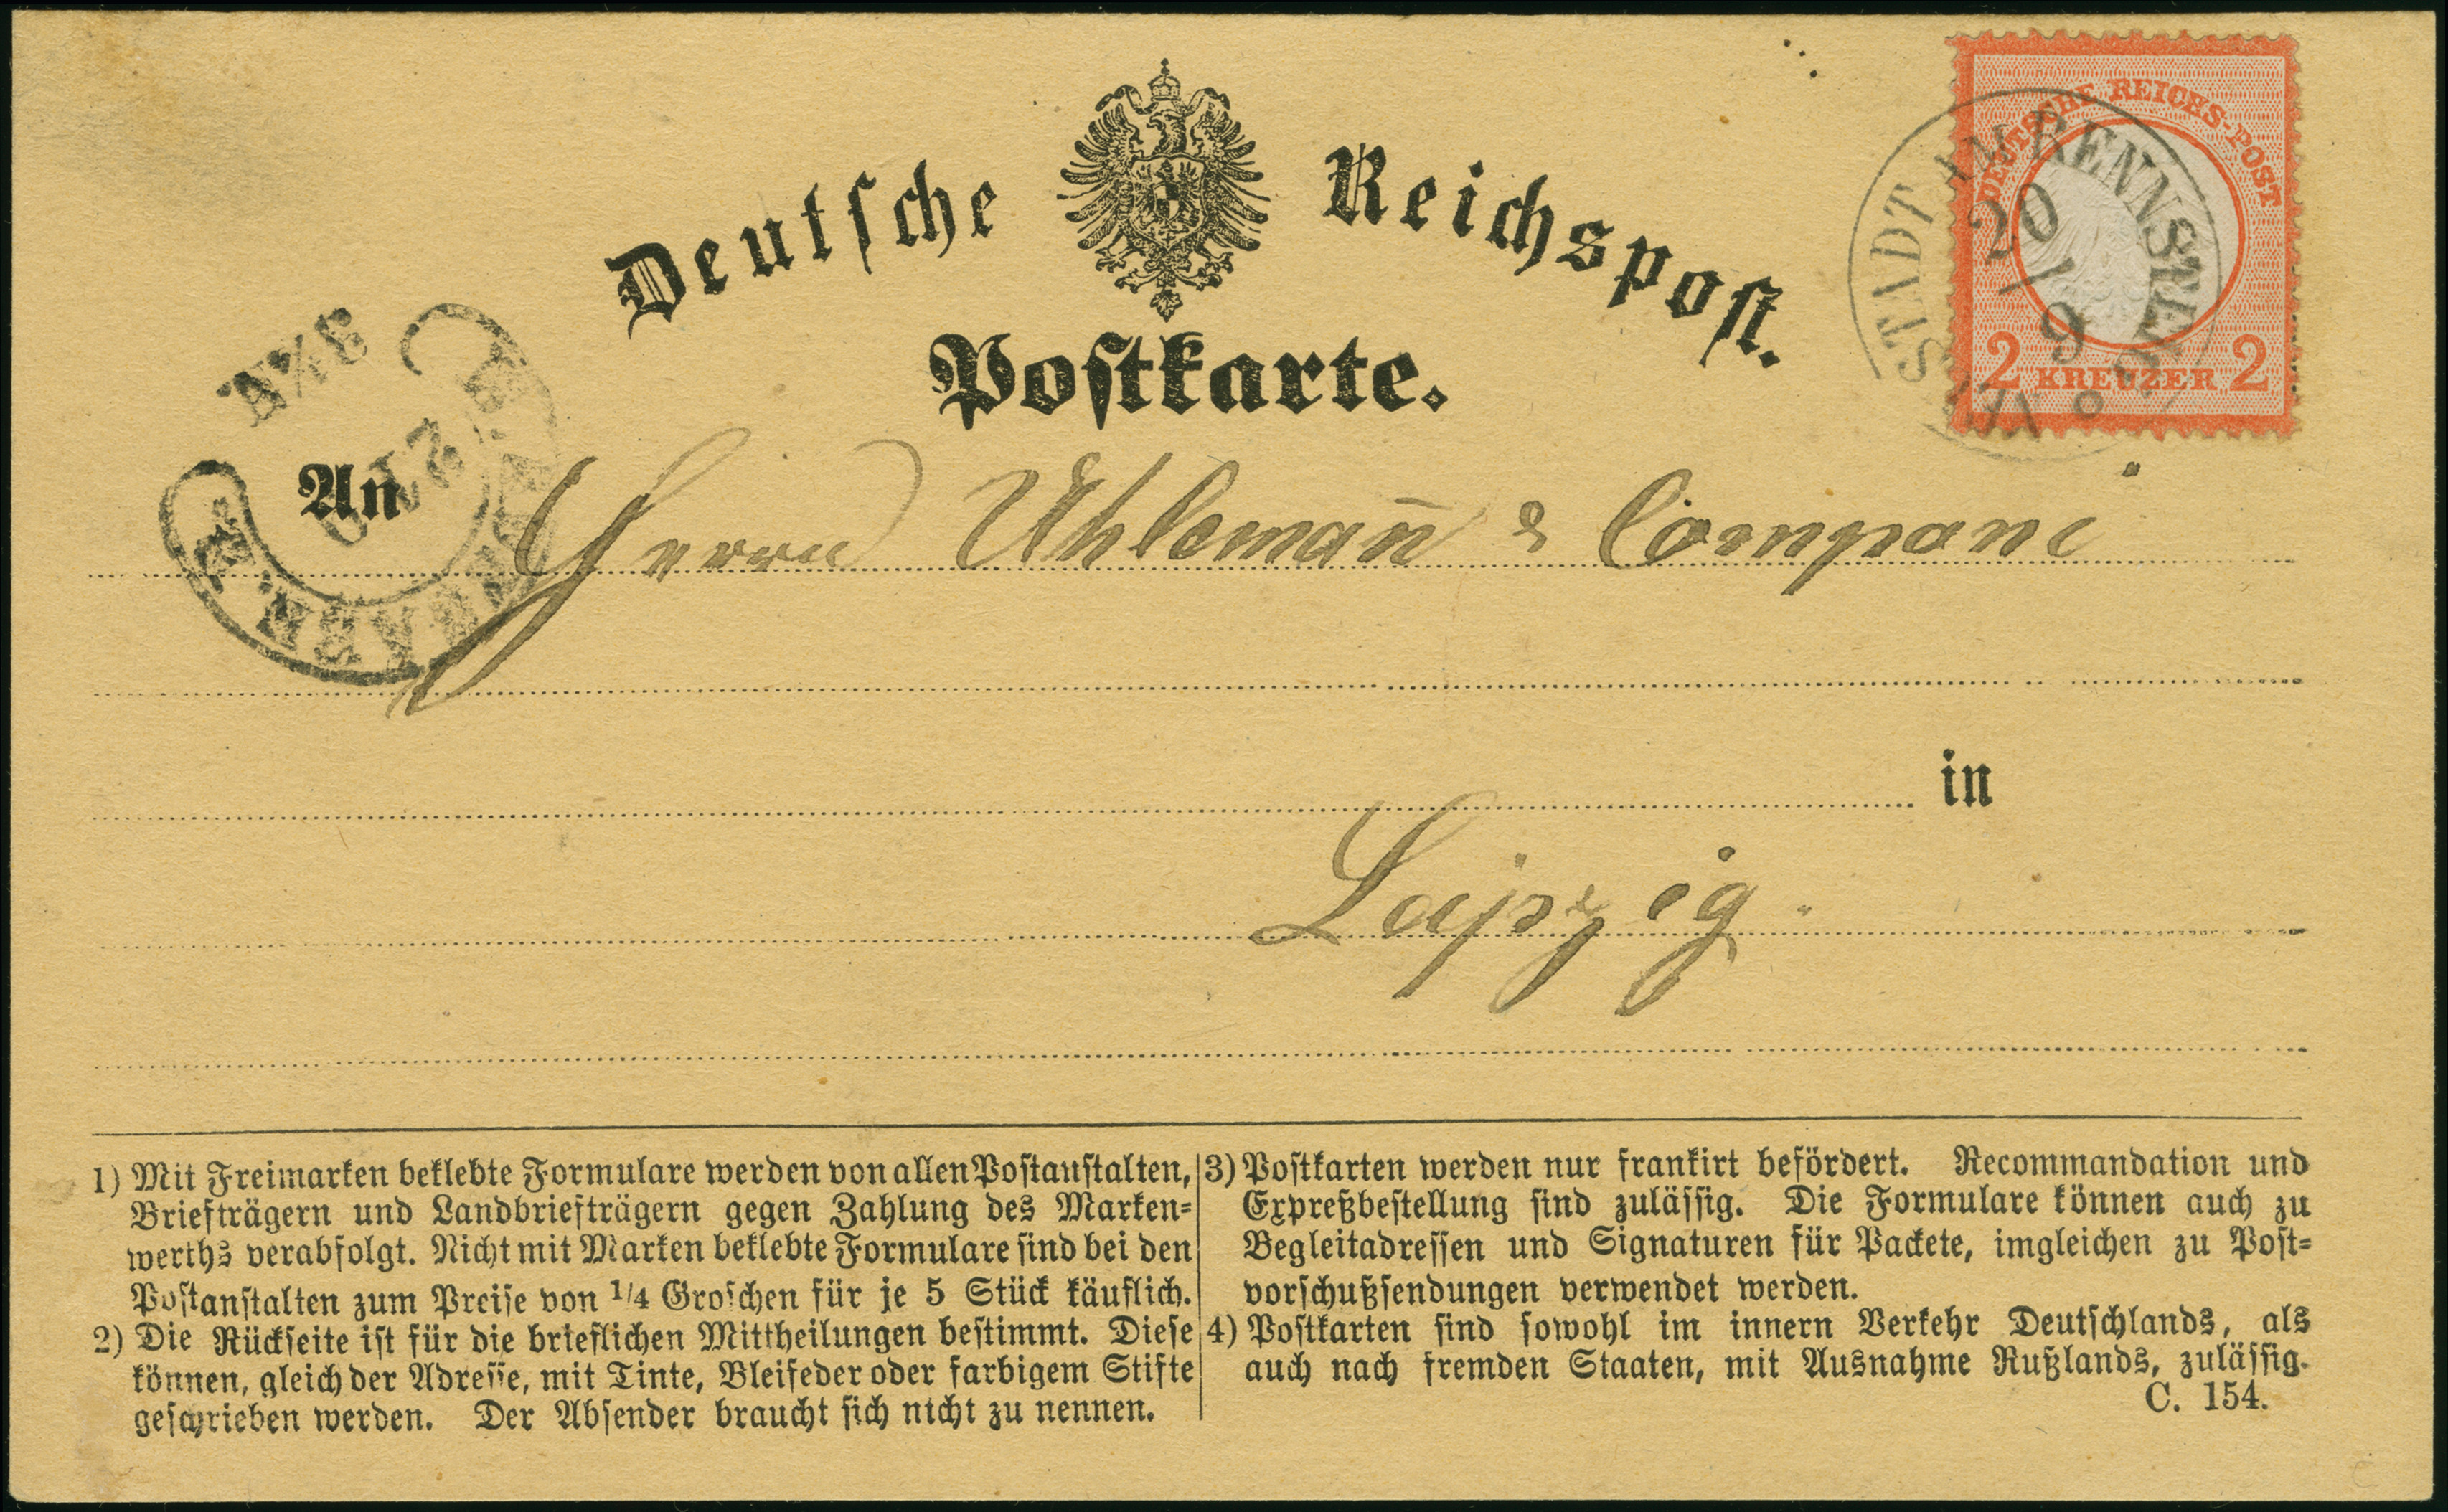 Deutsche Reichspost.
Postkarte.
DEUTSCHE REICHS-POST
2 KREUZER 2
STADT AM RENNSTEIG
20
9
An Herrn Uhlemañ & Compani
in
Leipzig.
1) Mit Freimarken beklebte Formulare werden von allen Postanstalten,
Briefträgern und Landbriefträgern gegen Zahlung des Marken-
werths verabfolgt. Nicht mit Marken beklebte Formulare sind bei den
Postanstalten zum Preise von 1/4 Groschen für je 5 Stück käuflich.
2) Die Rückseite ist für die brieflichen Mittheilungen bestimmt. Diese
können, gleich der Adresse, mit Tinte, Bleifeder oder farbigem Stifte
geschrieben werden. Der Absender braucht sich nicht zu nennen.
3) Postkarten werden nur frankirt befördert. Recommandation und
Expreßbestellung sind zulässig. Die Formulare können auch zu
Begleitadressen und Signaturen für Packete, imgleichen zu Post-
vorschußsendungen verwendet werden.
4) Postkarten sind sowohl im innern Verkehr Deutschlands, als
auch nach fremden Staaten, mit Ausnahme Rußlands, zulässig.
C. 154.